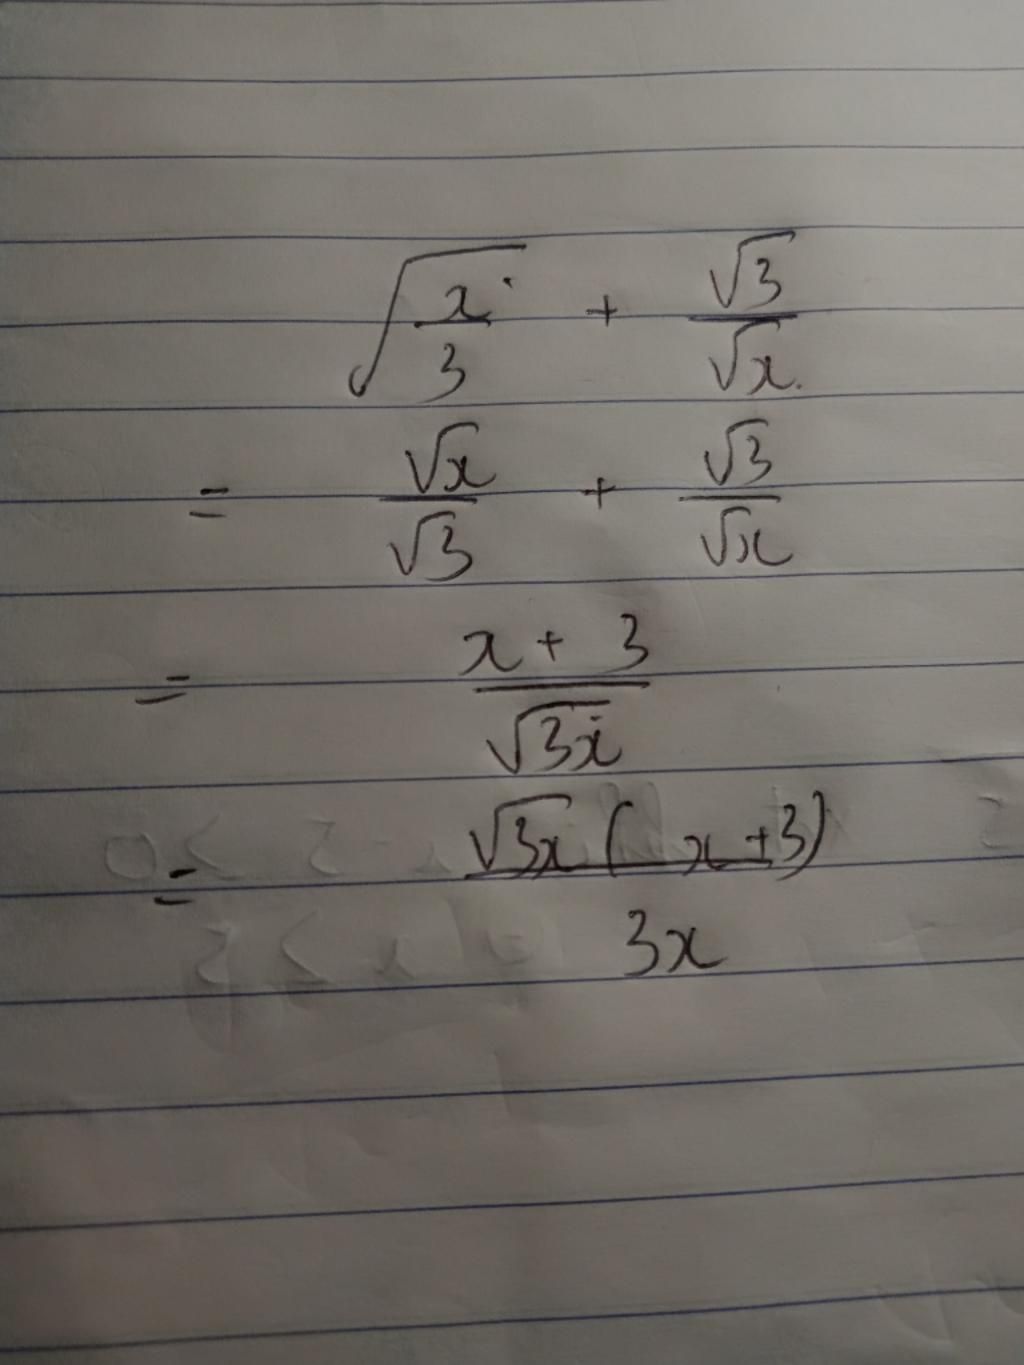 √(x/3) + √3/√x
= √x/√3 + √3/√x
= (x + 3)/√(3x)
= √(3x) (x + 3)/3x